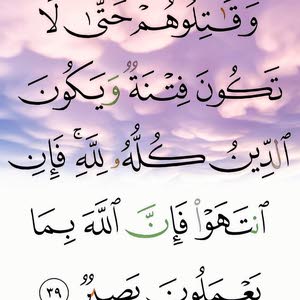 وَقَٰتِلُوهُمْ حَتَّىٰ لَا
تَكُونَ فِتْنَةٌ وَيَكُونَ
الدِّينُ كُلُّهُۥ لِلَّهِ ۚ فَإِنِ
انتَهَوْا۟ فَإِنَّ اللَّهَ بِمَا
يَعْمَلُونَ بَصِيرٌ ٣٩